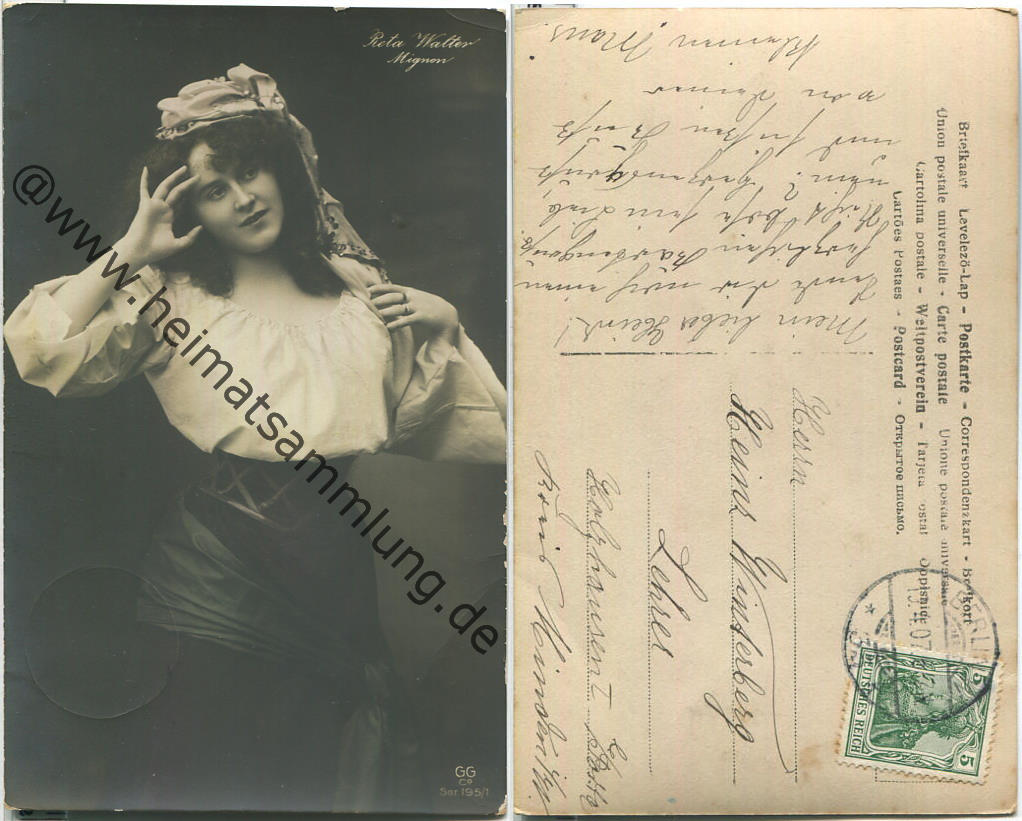 Reta Walter
Mignon
@www.heimatsammlung.de
GG
Co
Ser. 195/1
Briefkaart Levelező-Lap - Postkarte - Correspondenzkart - Brefkort
Union postale universelle - Carte postale Unione postale universale
Cartolina postale - Weltpostverein - Tarjeta postal Dopisnice
Cartões Postaes - Postcard - Открытое письмо.
Mein lieber Heinz!
Sende dir noch einen
herzlichen
und
von Deiner
kleinen Maus.
Herrn
Heinz Winterberg
Lehrer
Holzhausen
Kreis Minden i/W.
BERLIN
DEUTSCHES REICH
5
5